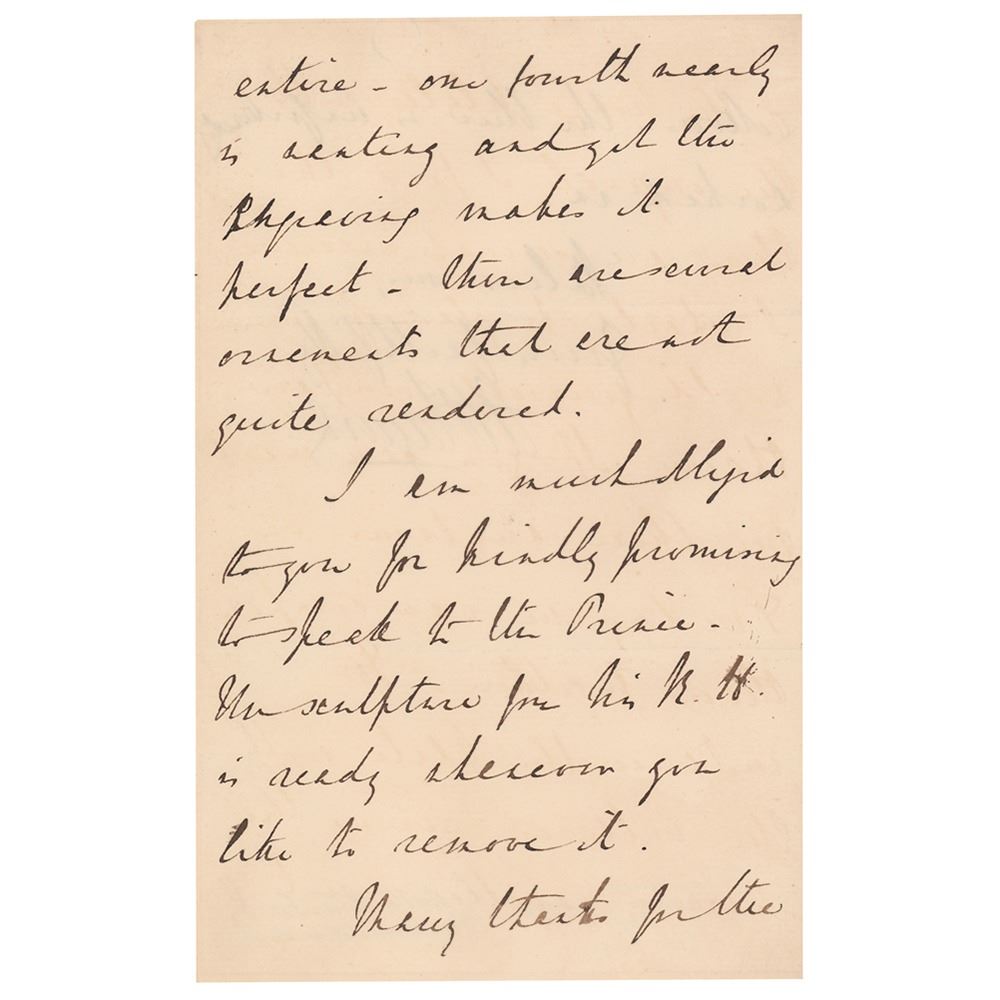 entire - one fourth nearly
is wanting and yet the
Engraving makes it
perfect - There are several
ornaments that are not
quite rendered.
I am much obliged
to you for kindly promising
to speak to the Prince -
The sculpture for his R. H.
is ready whenever you
like to remove it.
Many thanks for the